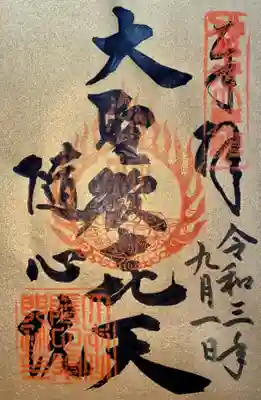 奉拝
令和三年
九月一日
大聖歓喜天
随心院